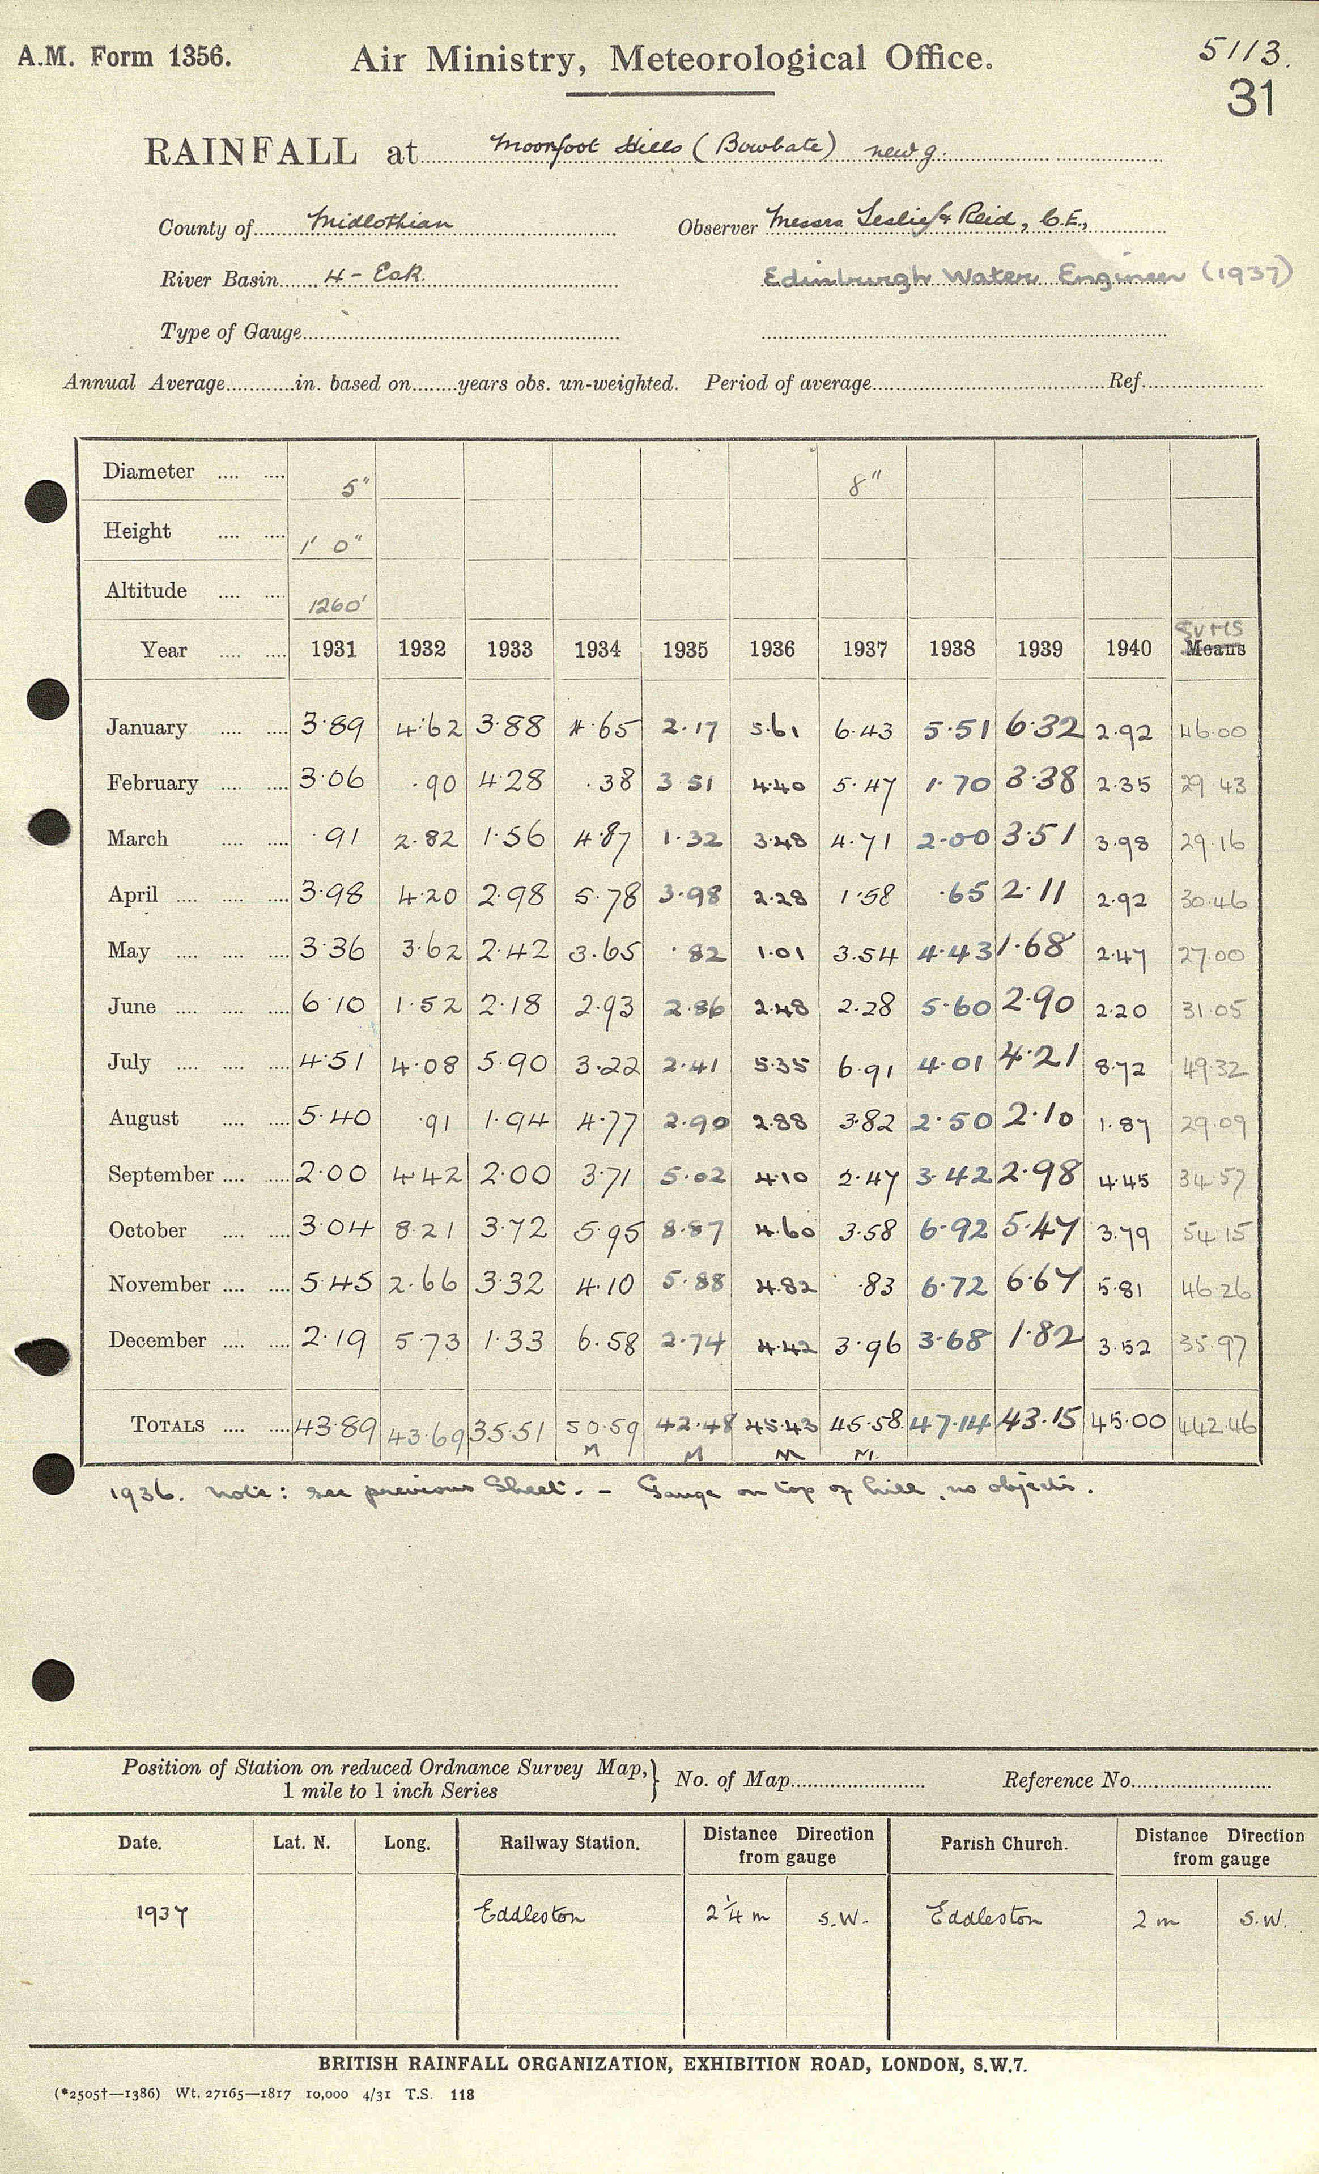 A.M. Form 1356. Air Ministry, Meteorological Office. 5113.
31
RAINFALL at Moorfoot Hills (Bowbate) new g.
County of Midlothian Observer Messrs Leslie & Reid, C.E.,
River Basin 4 - Esk Edinburgh Water Engineer (1937)
Type of Gauge
Annual Average in. based on years obs. un-weighted. Period of average Ref.
Diameter 5" 8"
Height 1' 0"
Altitude 1260'
SUMS
Year 1931 1932 1933 1934 1935 1936 1937 1938 1939 1940 Means
January 3.89 4.62 3.88 4.65 2.17 5.61 6.43 5.51 6.32 2.92 46.00
February 3.06 .90 4.28 .38 3.51 4.40 5.47 1.70 3.38 2.35 29.43
March .91 2.82 1.56 4.87 1.32 3.48 4.71 2.00 3.51 3.98 29.16
April 3.98 4.20 2.98 5.78 3.98 2.28 1.58 .65 2.11 2.92 30.46
May 3.36 3.62 2.42 3.65 .82 1.01 3.54 4.43 1.68 2.47 27.00
June 6.10 1.52 2.18 2.93 2.86 2.48 2.28 5.60 2.90 2.20 31.05
July 4.51 4.08 5.90 3.22 2.41 5.35 6.91 4.01 4.21 8.72 49.32
August 5.40 .91 1.94 4.77 2.90 2.88 3.82 2.50 2.10 1.87 29.09
September 2.00 4.42 2.00 3.71 5.02 4.10 2.47 3.42 2.98 4.45 34.57
October 3.04 8.21 3.72 5.95 8.87 4.60 3.58 6.92 5.47 3.79 54.15
November 5.45 2.66 3.32 4.10 5.88 4.82 .83 6.72 6.67 5.81 46.26
December 2.19 5.73 1.33 6.58 2.74 4.42 3.96 3.68 1.82 3.52 35.97
TOTALS 43.89 43.69 35.51 50.59 42.48 45.43 45.58 47.14 43.15 45.00 442.46
M M M M
1936. Note: see previous Sheet. - Gauge on top of hill, no objects.
Position of Station on reduced Ordnance Survey Map,} No. of Map Reference No.
1 mile to 1 inch Series
Date. Lat. N. Long. Railway Station. Distance Direction from gauge Parish Church. Distance Direction from gauge
1937 Eddleston 2¼ m S.W. Eddleston 2 m S.W.
BRITISH RAINFALL ORGANIZATION, EXHIBITION ROAD, LONDON, S.W.7.
(*2505†—1386) Wt. 27165—1817 10,000 4/31 T.S. 118